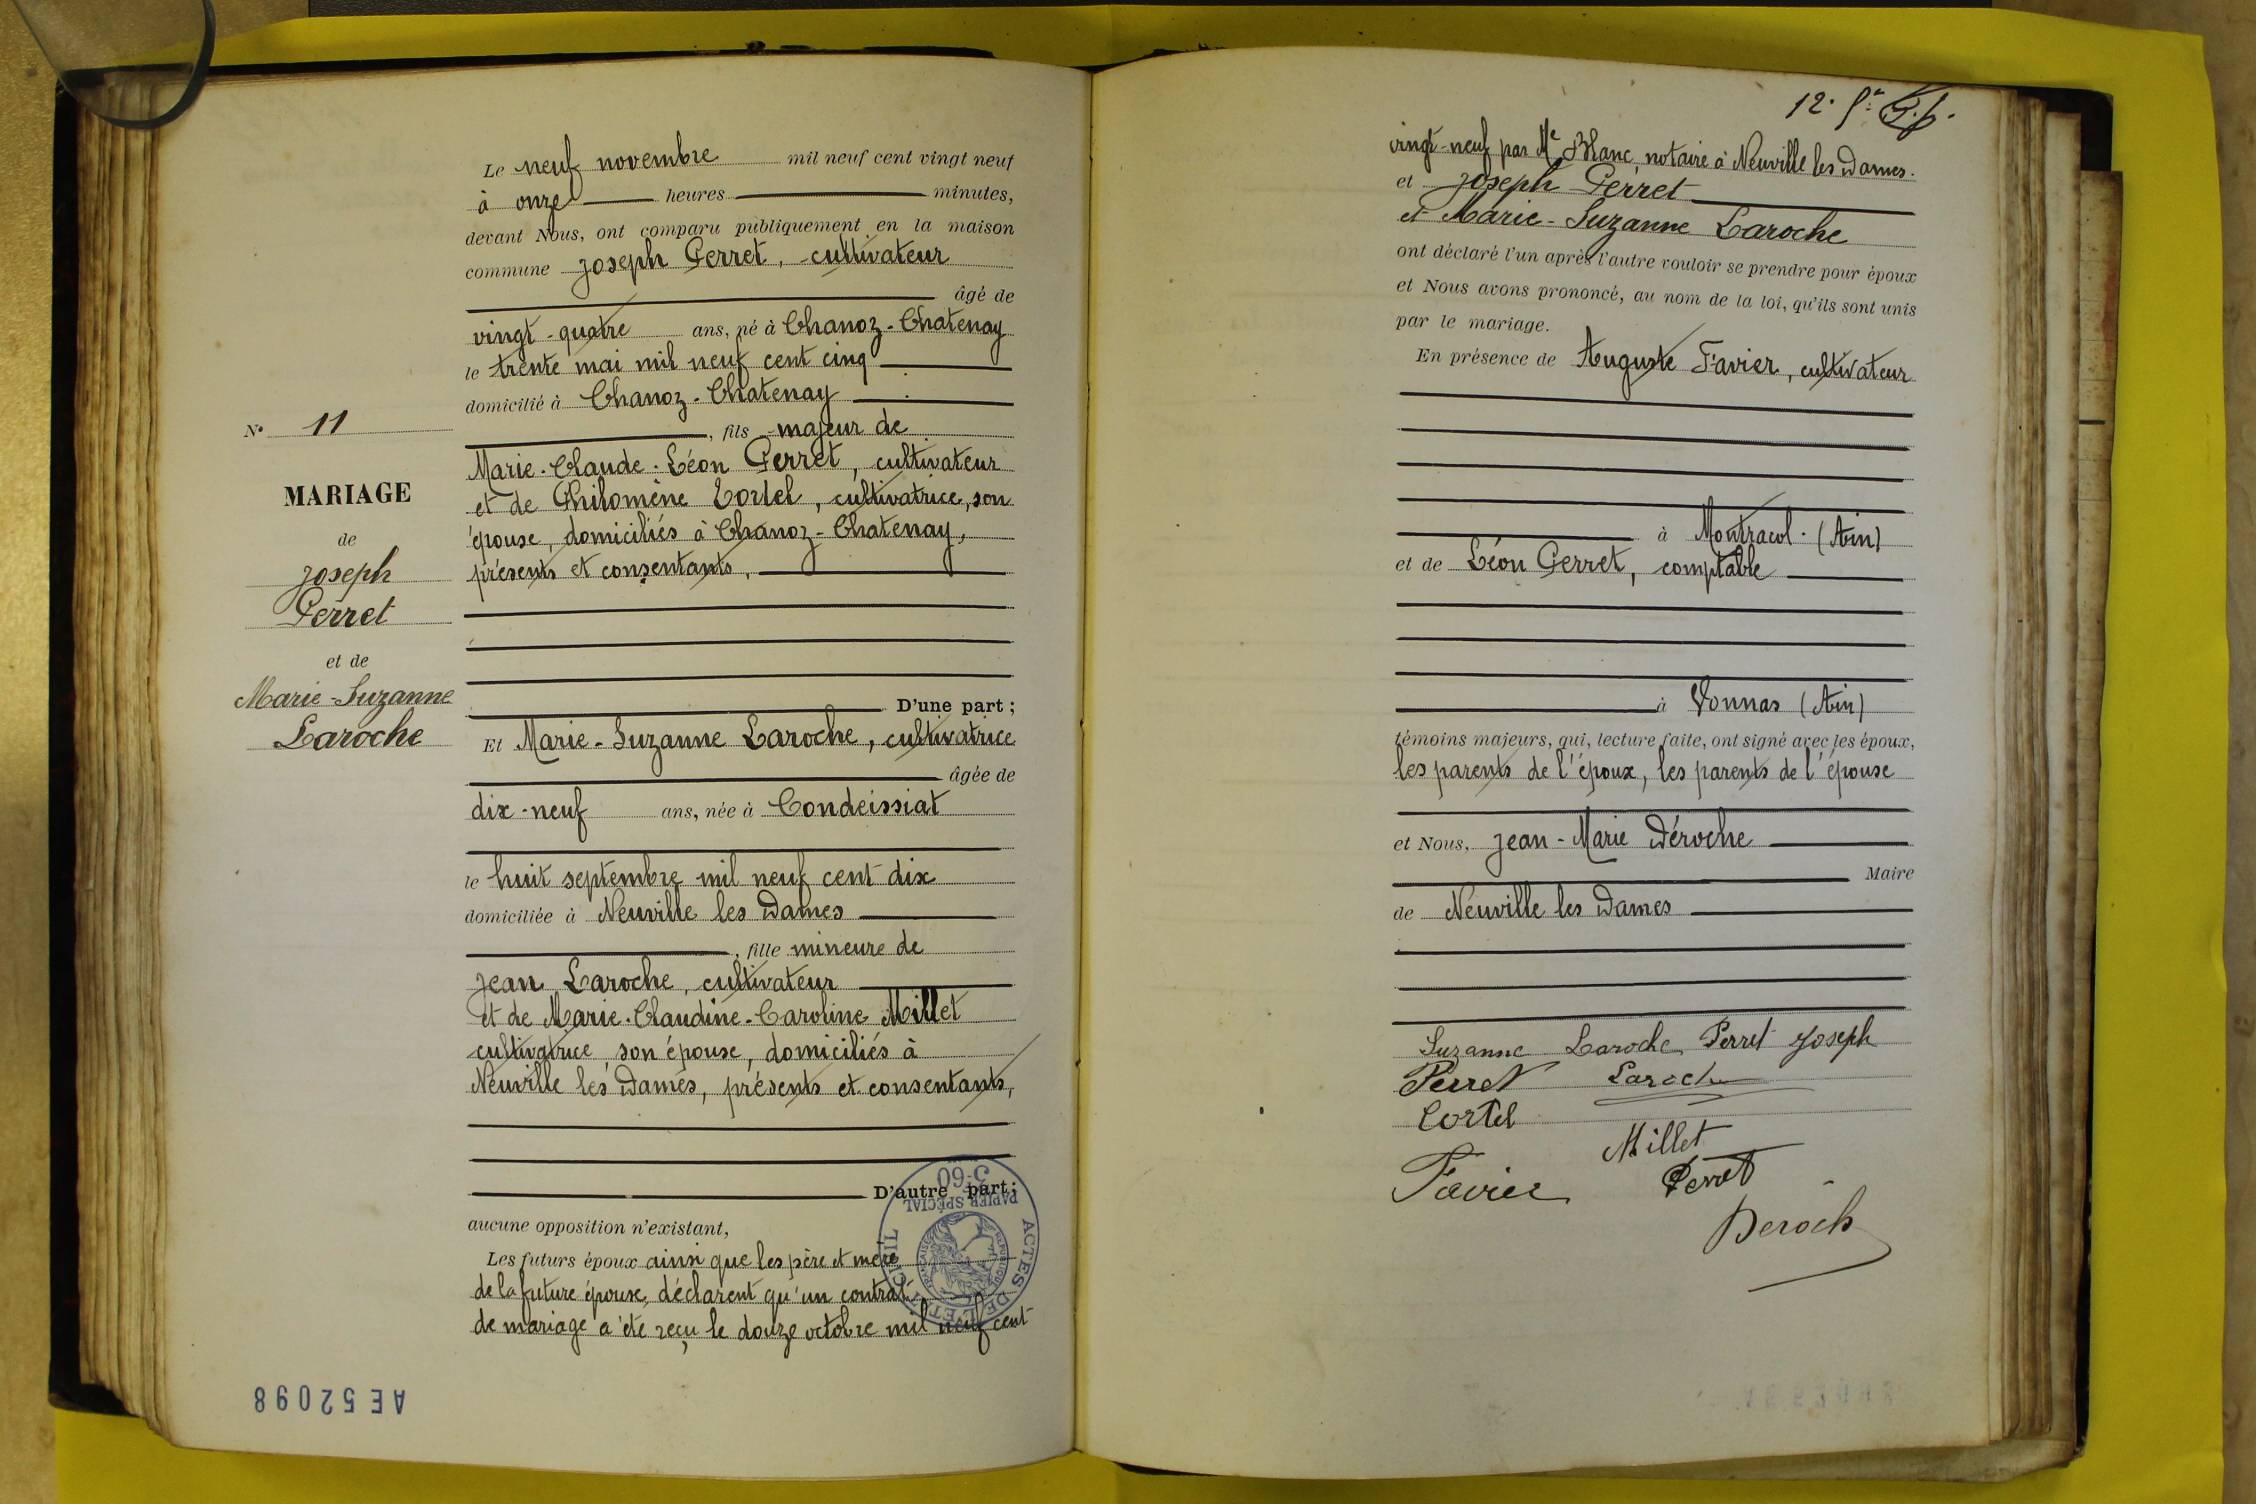 Le neuf novembre mil neuf cent vingt neuf
à onze heures minutes,
devant Nous, ont comparu publiquement en la maison
commune Joseph Perret, cultivateur
âgé de
vingt-quatre ans, né à Chanoz-Chatenay
le trente mai mil neuf cent cinq
domicilié à Chanoz-Chatenay
, fils majeur de
Marie-Claude-Léon Perret, cultivateur
et de Philomène Cortel, cultivatrice, son
épouse, domiciliés à Chanoz-Chatenay,
présents et consentants,
D'une part;
Et Marie-Suzanne Laroche, cultivatrice
âgée de
dix-neuf ans, née à Condeissiat
le huit septembre mil neuf cent dix
domiciliée à Neuville les Dames
, fille mineure de
Jean Laroche, cultivateur
et de Marie-Claudine-Caroline Millet
cultivatrice son épouse, domiciliés à
Neuville les Dames, présents et consentants,
D'autre part;
aucune opposition n'existant,
Les futurs époux ainsi que les père et mère
de la future épouse, déclarent qu'un contrat
de mariage a été reçu le douze octobre mil neuf cent
N° 11
MARIAGE
de
Joseph
Perret
et de
Marie-Suzanne
Laroche
ACTES DE L'ETAT CIVIL
PAPIER SPÉCIAL
3-60
REPUBLIQUE FRANÇAISE
AE 52098
12.
vingt-neuf par Me Blanc notaire à Neuville les Dames.
et Joseph Perret
et Marie-Suzanne Laroche
ont déclaré l'un après l'autre vouloir se prendre pour époux
et Nous avons prononcé, au nom de la loi, qu'ils sont unis
par le mariage.
En présence de Auguste Favier, cultivateur
à Montracol. (Ain)
et de Léon Perret, comptable
à Vonnas (Ain)
témoins majeurs, qui, lecture faite, ont signé avec les époux,
les parents de l'époux, les parents de l'épouse
et Nous, Jean-Marie Déroche
Maire
de Neuville les Dames
Suzanne Laroche Perret Joseph
Perret Laroche
Cortel
Millet
Favier Perret
Deroch